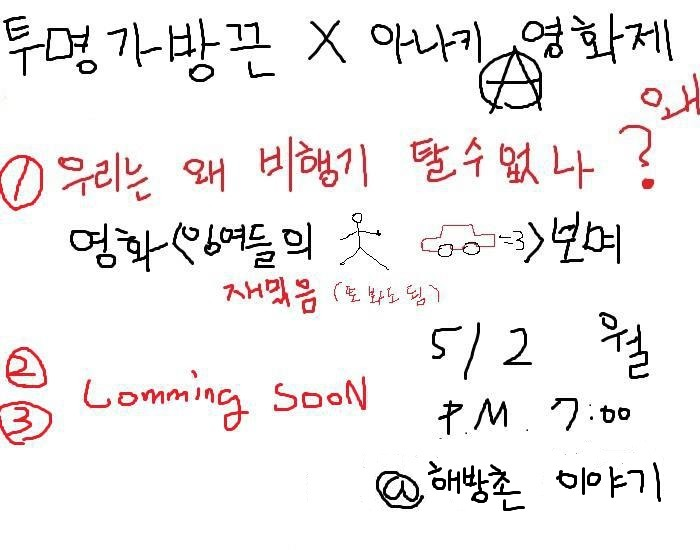 투명가방끈 X 아나키 Ⓐ 영화제
① 우리는 왜 비행기 탈 수 없나 ? 왜
영화 <잉여들의 =3> 보며
재밌음 (또 봐도 됨)
②
③ Comming SooN
5/2 월
P.M. 7:00
@해방촌 이야기